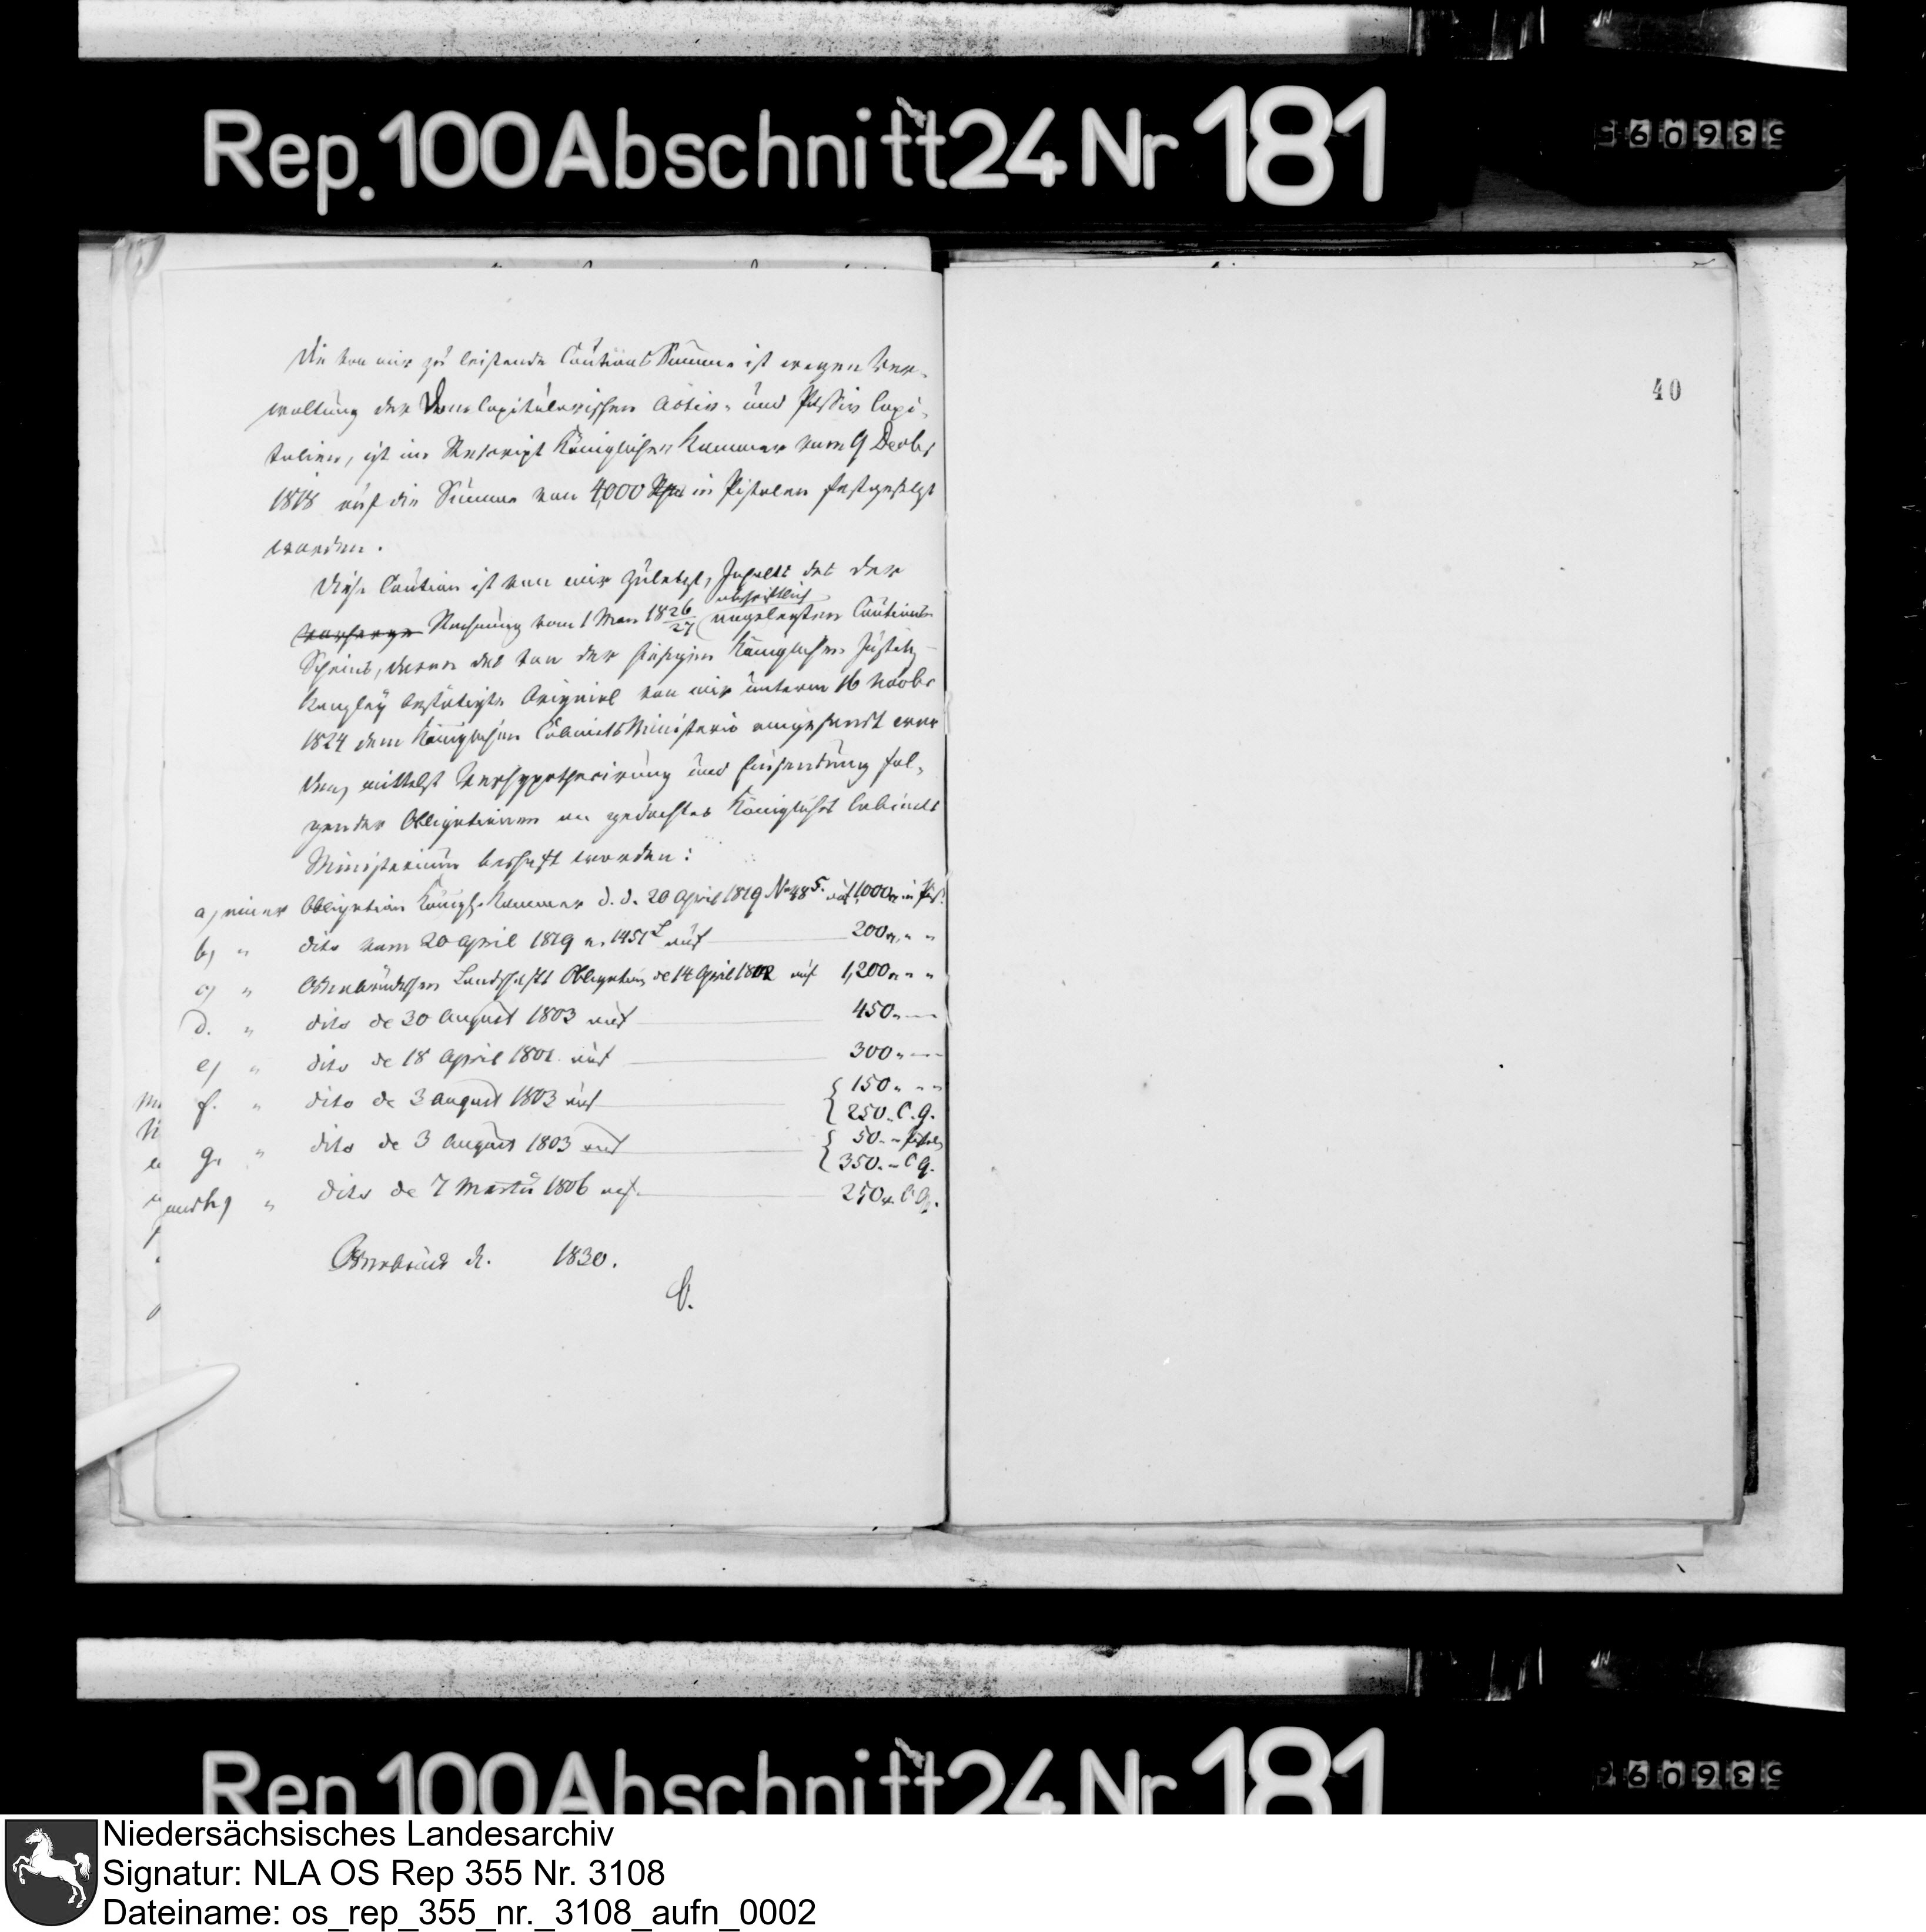 Rep. 100 Abschnitt 24 Nr 181
40
Die von mir zu leistende Cautions Summe ist wegen Ver-
waltung der Dom Capitularischen Activ- und Passiv Capi-
talien, ist im Rescript Königlicher Kammer vom 9 Decbr
1818 auf die Summe von 4,000 Rthlr in Pistolen festgesetzt
worden.
Diese Caution ist von mir zuletzt, Inhalts des der
abschriftlich
Rechnung vom 1 May 1826/27 angelegten Cautions-
Scheins, dessen das von der hiesigen Königlichen Justitz-
Kanzley bestätigte Original von mir unterm 16 Novbr
1824 dem Königlichen Cabinets Ministerio eingesandt wor
den, mittelst Verhypothecirung und Einsendung fol-
gender Obligationen an gedachtes Königliches Cabinets
Ministerium beschafft worden:
a) einer Obligation Königl. Kammer d. d. 20 April 1819 No 48 auf 1,000 in Pist.
b) " dito vom 20 April 1819 n. 1451 auf 200 " "
c) " Osnabrückschen Landschafts Obligation de 14 April 1802 auf 1,200 " "
d. " dito de 30 August 1803 auf 450 "
e) " dito de 18 April 1801 auf 300 "
f. " dito de 3 August 1803 auf { 150 " "
{ 250. C. g.
g. " dito de 3 August 1803 auf { 50 " Pistolen
{ 350. " C g.
und h) " dito de 7 Martii 1806 auf 250 C g.
Osnabrück d. 1830.
Rep. 100 Abschnitt 24 Nr 181
Niedersächsisches Landesarchiv
Signatur: NLA OS Rep 355 Nr. 3108
Dateiname: os_rep_355_nr._3108_aufn_0002